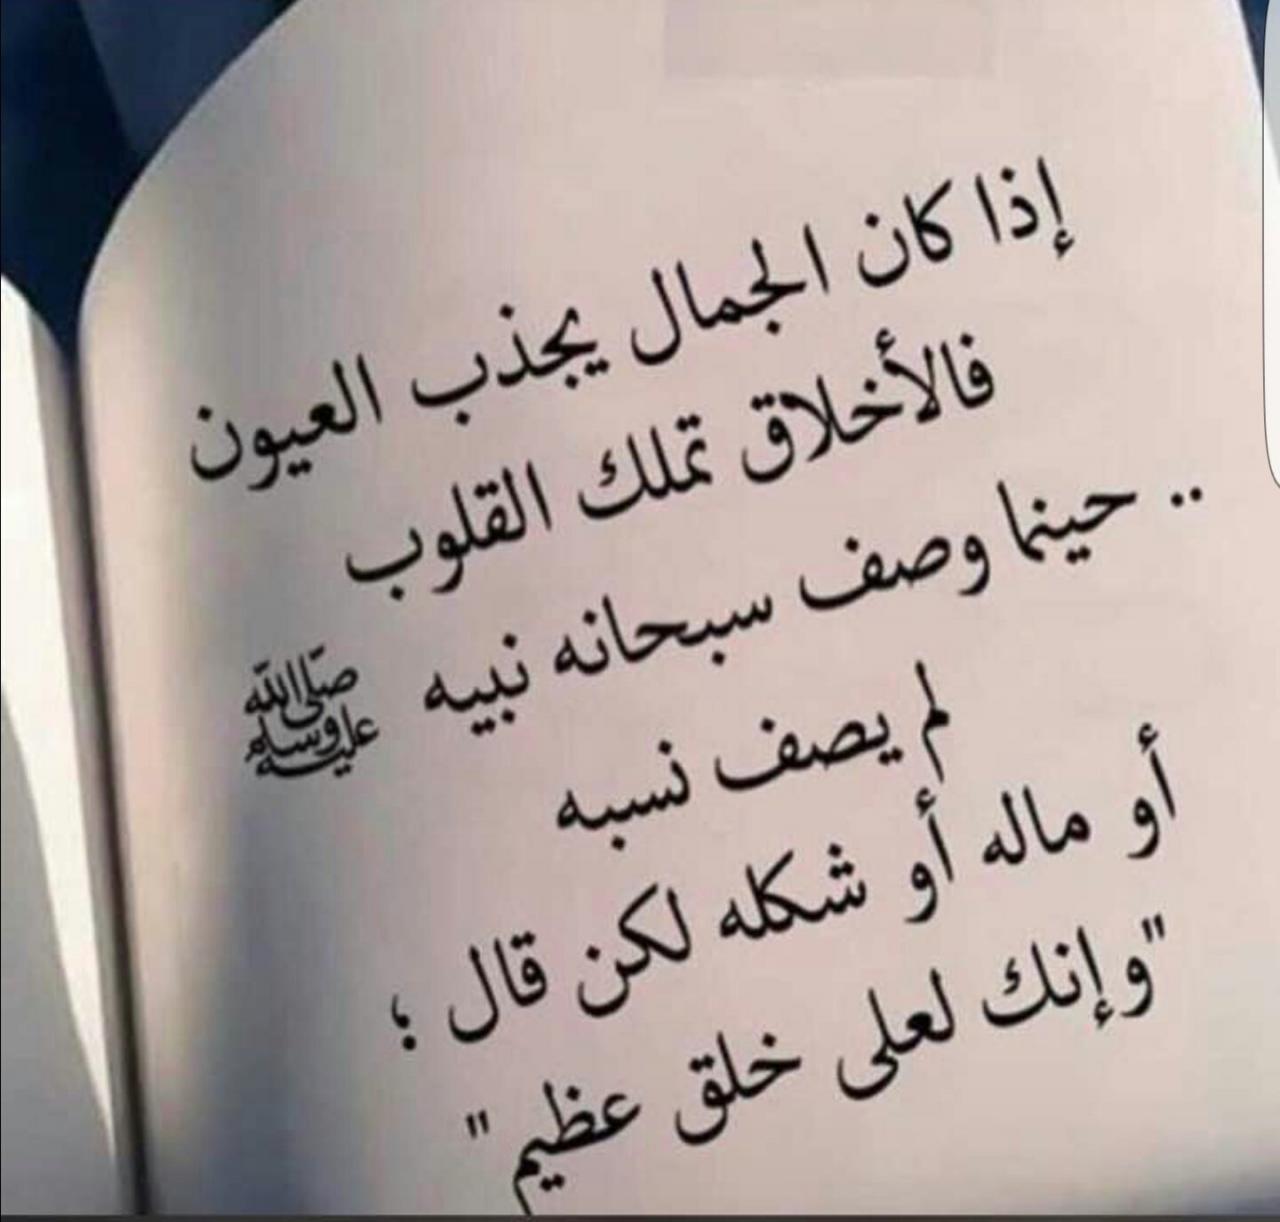 إذا كان الجمال يجذب العيون
فالأخلاق تملك القلوب
.. حينما وصف سبحانه نبيه ﷺ
لم يصف نسبه
أو ماله أو شكله لكن قال ؛
"وإنك لعلى خلق عظيم"